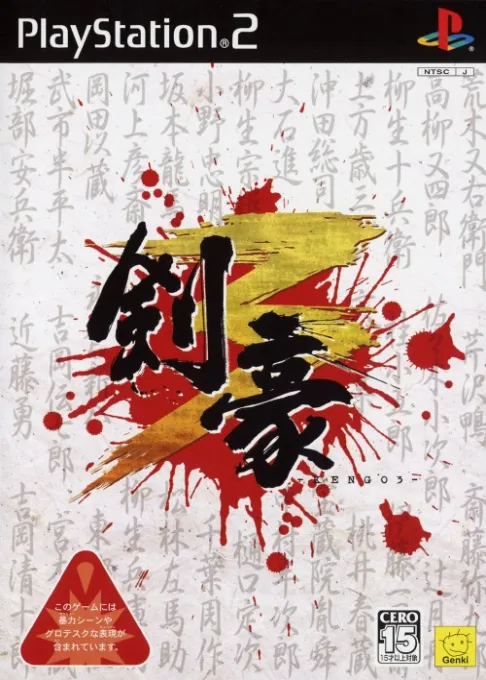 PlayStation®2
NTSC J
荒木又右衛門
高柳又四郎
柳生十兵衛
土方歳三
沖田総司
大石進
柳生宗
小野忠明
坂本龍
河上彦斎
岡田以蔵
武市半平太
堀部安兵衛
剣豪
3
-KENGO3-
芹沢鴨
小次郎
近藤勇
斎藤弥
桃井春蔵
蔵院胤舜
樋口定次
千葉周作
松林左馬助
柳生兵
東
宮
吉岡清十
このゲームには
暴力シーンや
グロテスクな表現が
含まれています。
CERO
15
15才以上対象
Genki